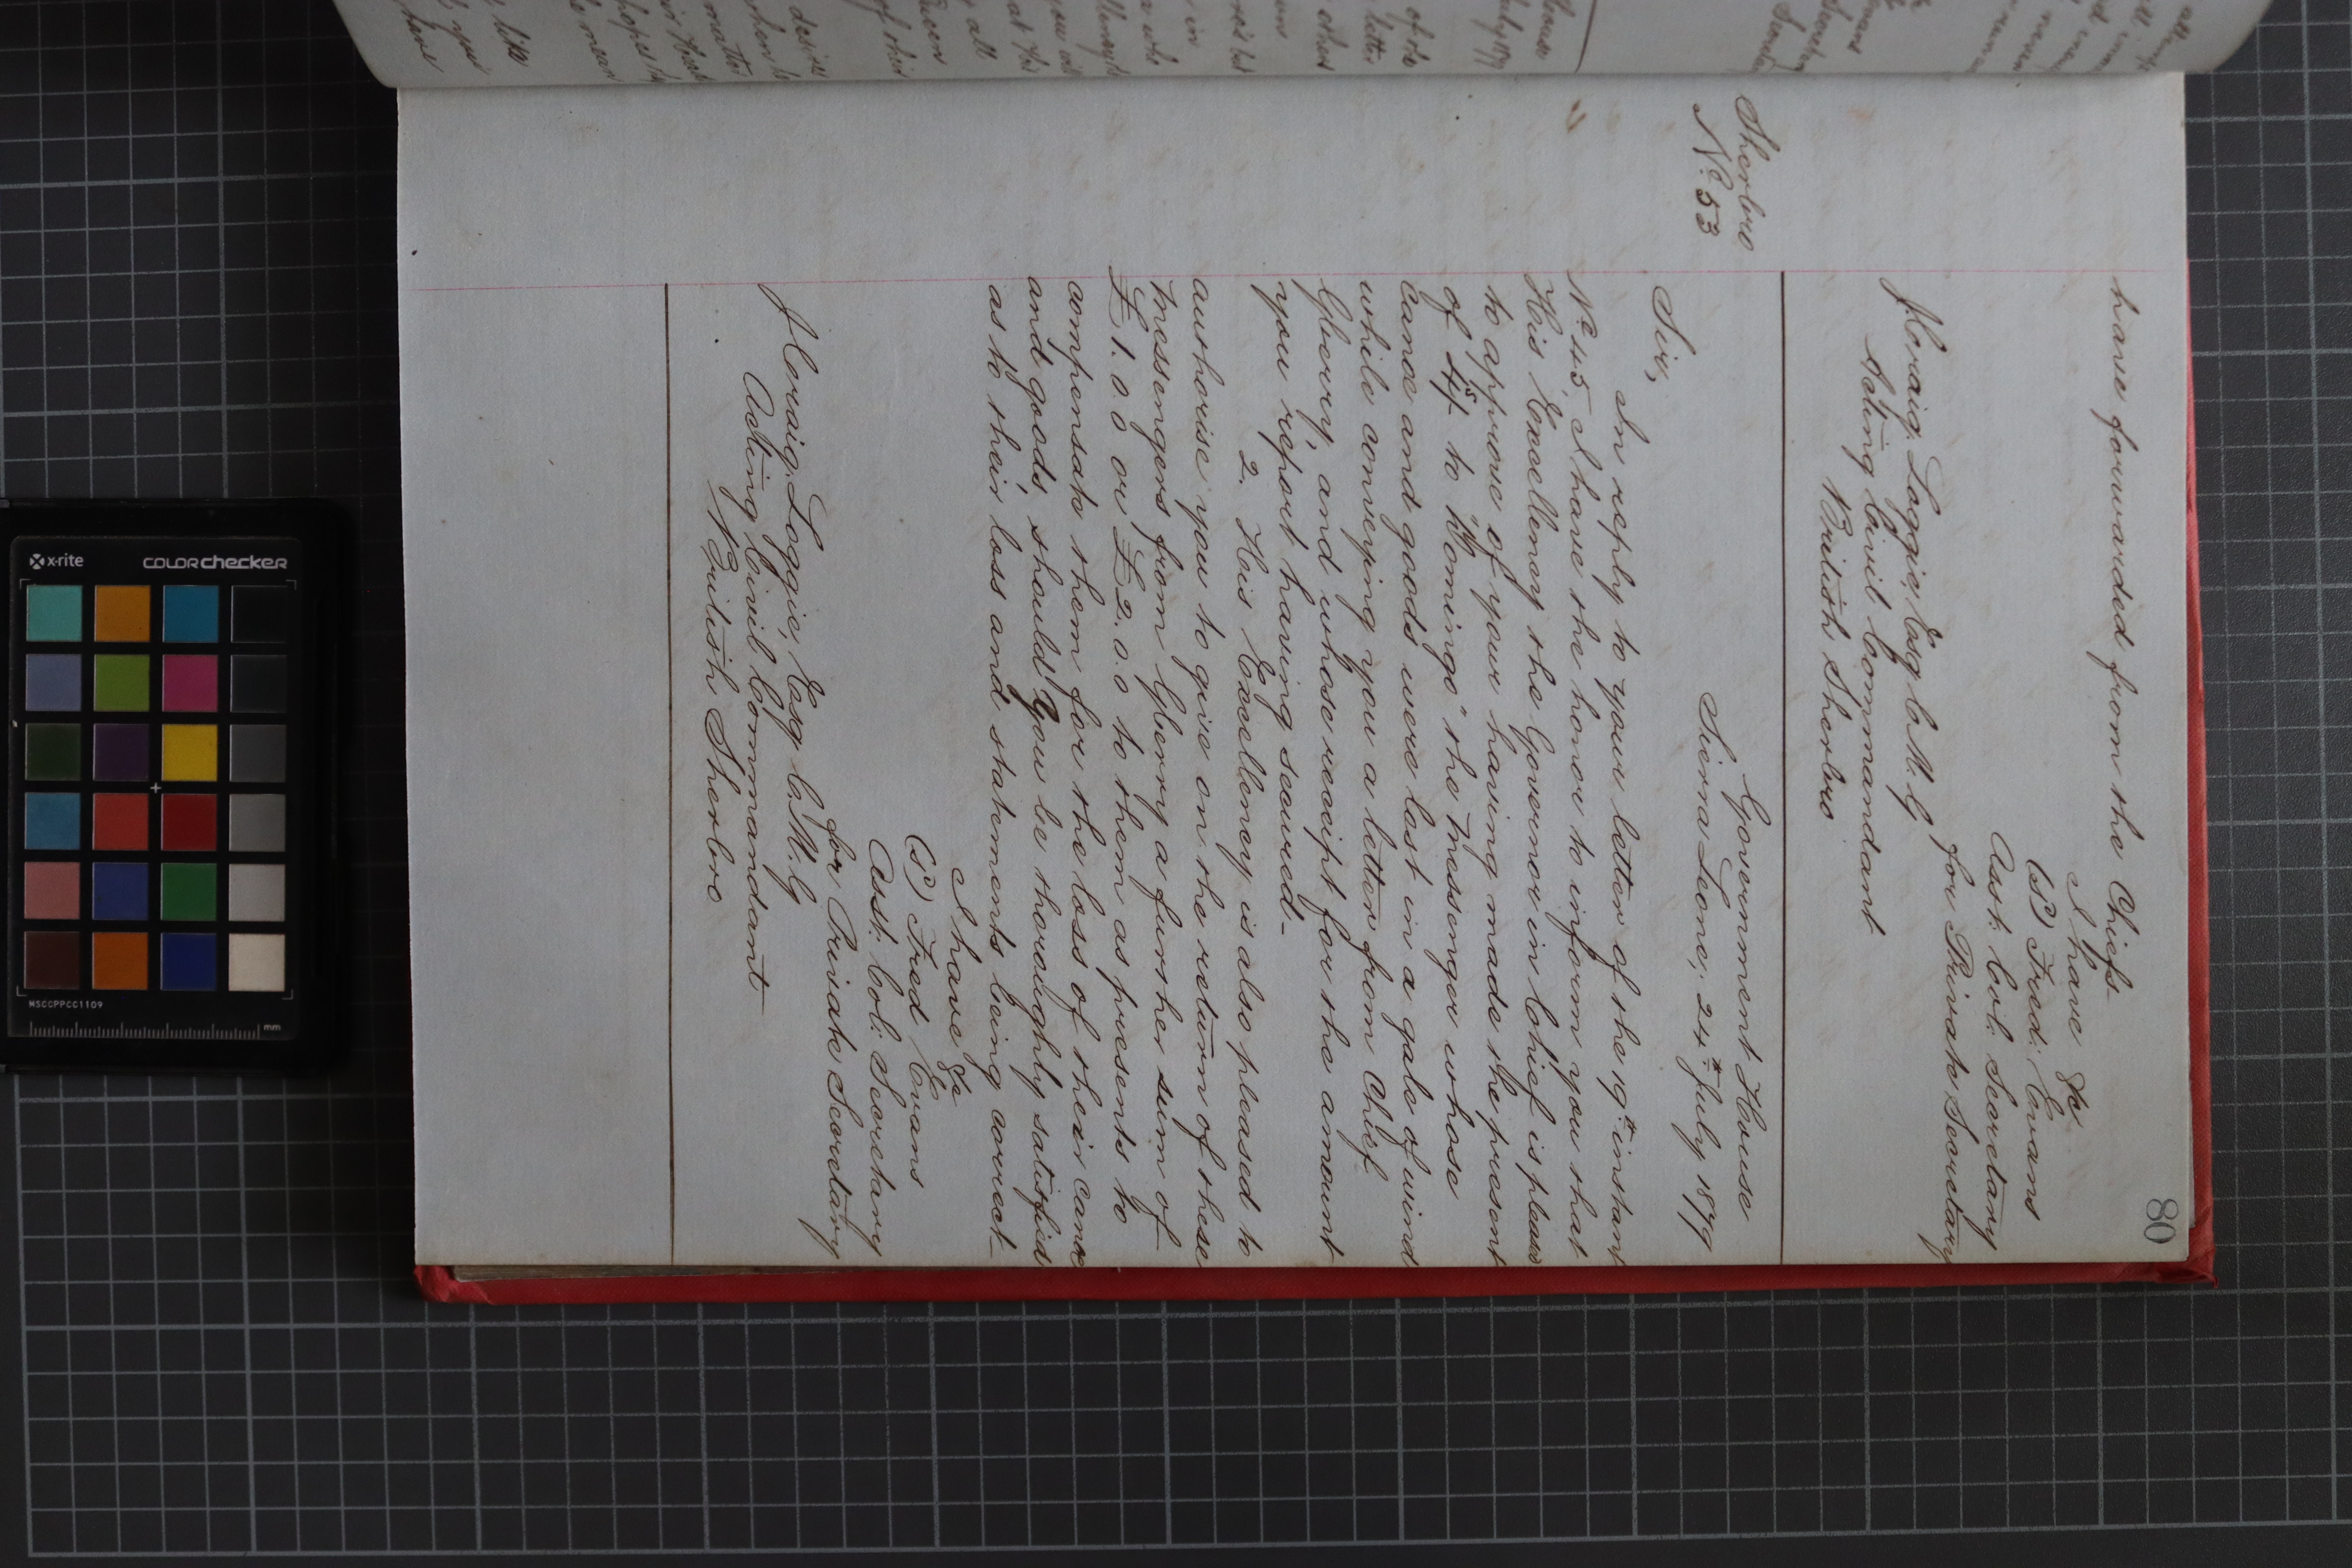 80
have forwarded from the Chiefs
I have &c
(s^d) Fred: Evans
Asst: Col: Secretary
for Private Secretary
Loggie, Esq C.M.G
Acting Civil Commandant
British Sherbro
Sherbro
No. 53
Government House
Sierra Leone, 24th July 1879
Sir,
In reply to your letter of the 19th instant
No. 45, I have the honor to inform you that
His Excellency the Governor in Chief is pleased
to approve of your having made the present
of to "Womingo" the messenger whose
canoe and goods were lost in a gale of wind
while conveying you a letter from Chief
Gberry, and whose receipt for the amount
you report having secured-
2. His Excellency is also pleased to
authorise you to give on the return of these
messengers from Gberry a further sum of
£1.0.0 or £2.0.0 to them as presents to
compensate them for the loss of their canoe
and goods, should you be thoroughly satisfied
as to their loss and statements being correct-
I have &c
(s^d) Fred Evans
Asst: Col: Secretary
for Private Secretary
Loggie, Esq C.M.G
Acting Civil Commandant
British Sherbro
x-rite
colorchecker
MSCCPPCC1109
mm